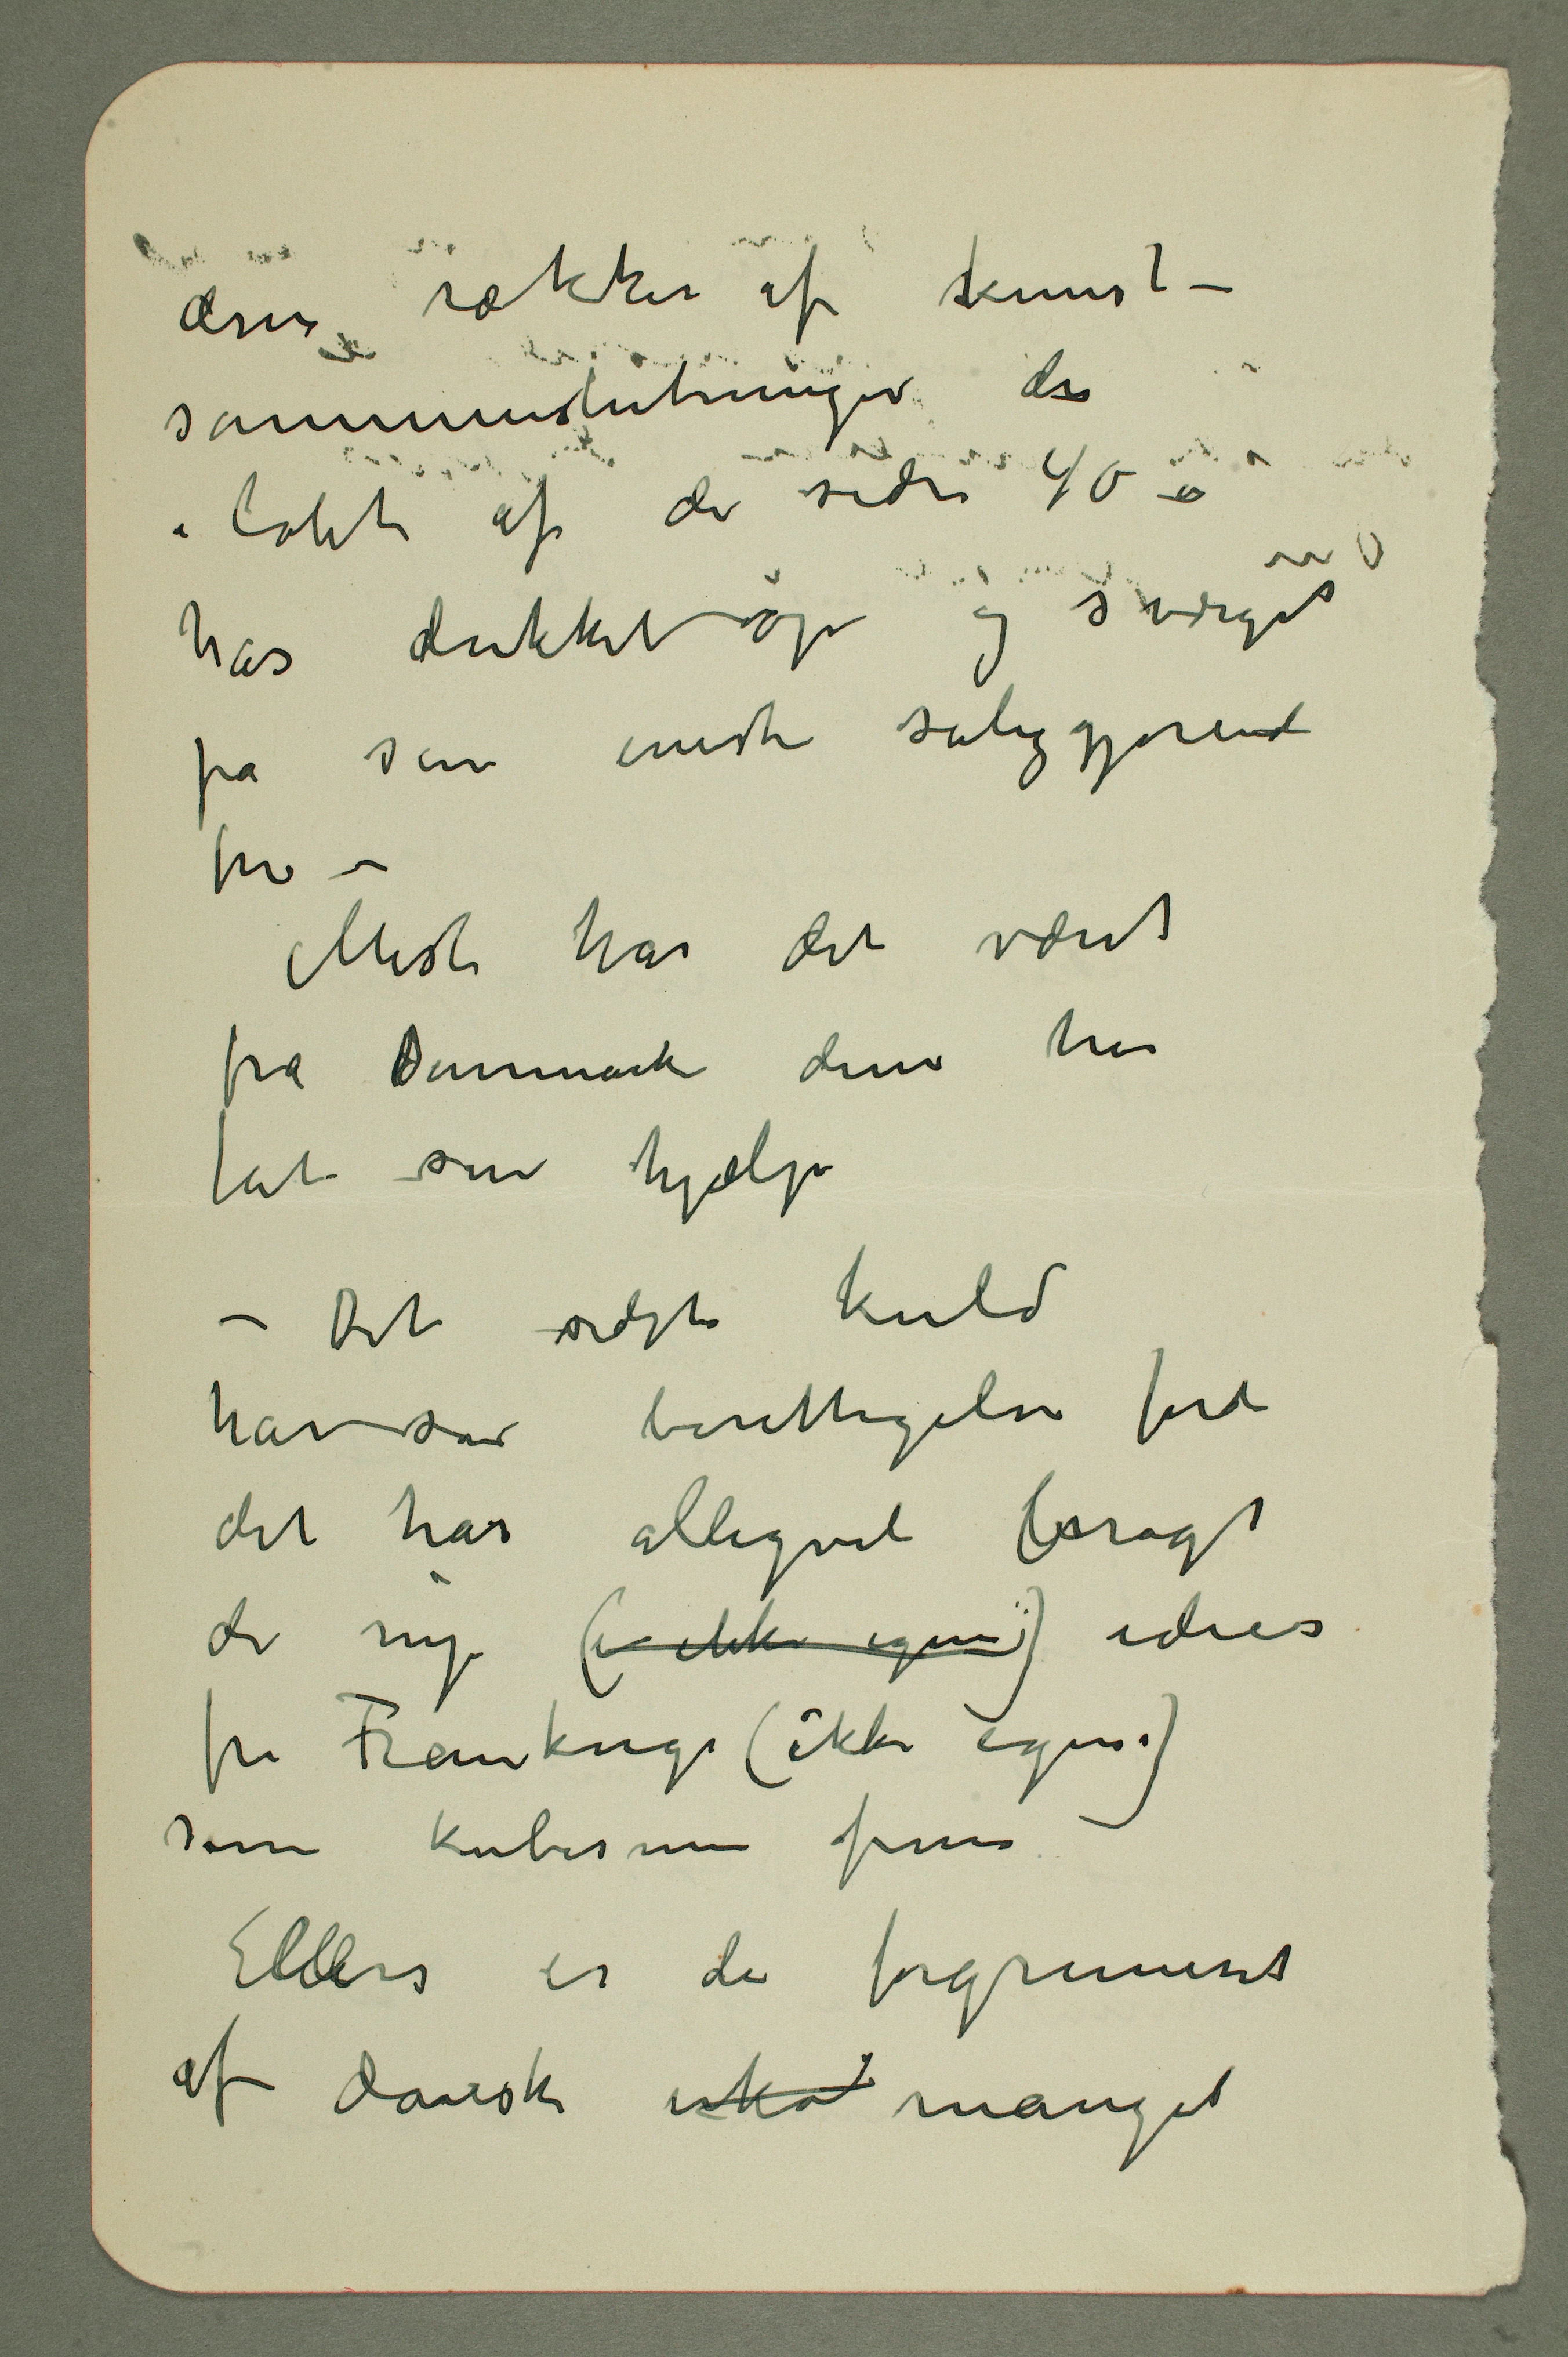 den rækker af kunst–
sammenslutninger der
i løbet af de sidse 40 å
har dukket op og sværget
på sin eneste saliggjørend
fre –
Mest har det været
fra Danmark denne har
fåt sin hjælp
– Det sidste kuld
har sin berettigelse ford
det har alligevel bragt
de nye (ikke egne) idees
fra Frankrige (ikke egne)
som kubismen
Ellers er de forgrenet
af danske mangel